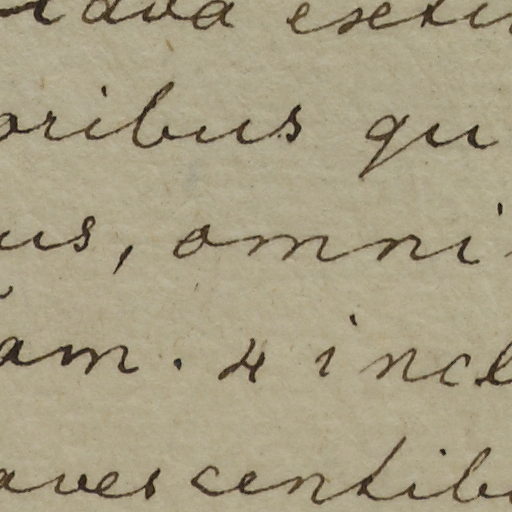 exti
oribus qu
us, omni
am. 4 incl
avescentib